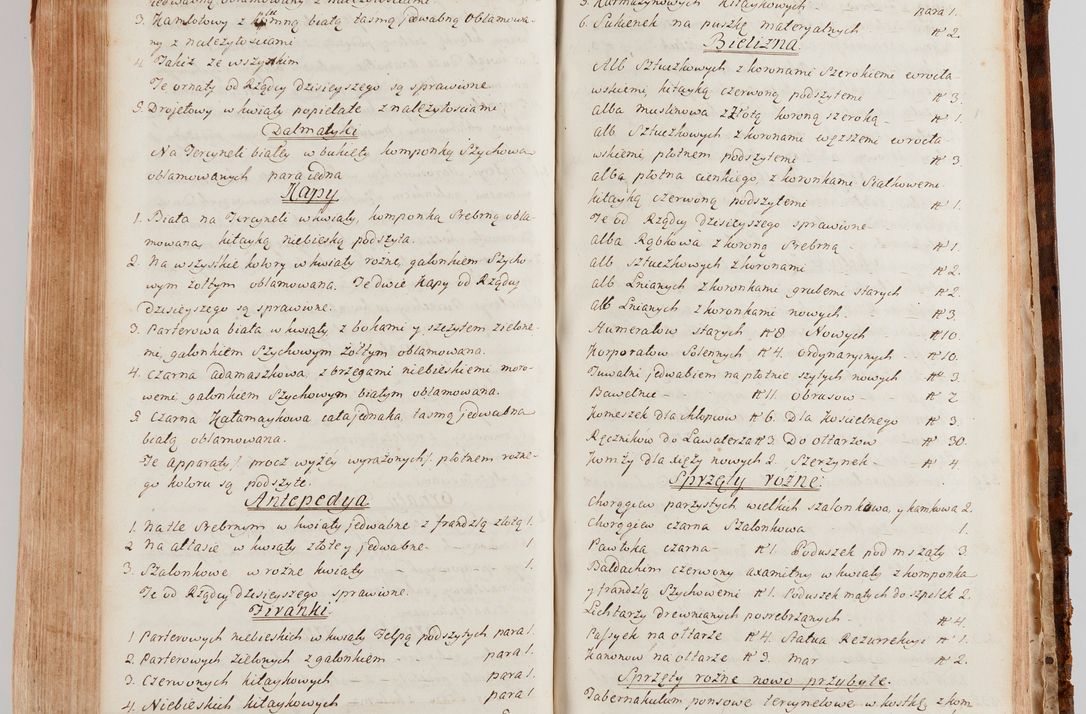 3. Kamlotowy z ciemną białą taśmą jedwabną oblamowa-
ny z należytościami
4. Takiż ze wszystkim
Te ornaty od Rządcy dzisieyszego są sprawione
5. Drojetowy w kwiaty popielate z należytościami
Dalmatyki
Na Tercyneli białey w bukiety komponką Szychową
oblamowanych para iedna
Kapy
1. Biała na Tercyneli w kwiaty, komponką Srebrną obla-
mowana, kitayką niebieską podszyta.
2. Na wszystkie kolory w kwiaty rożne, galonkiem Szycho-
wym żołtym oblamowana. Te dwie Kapy od Rządcy
dzisieyszego są sprawione.
3. Parterowa biała w kwiaty z bokami y szczytem zielone-
mi galonkiem Szychowym żołtym oblamowana.
4. Czarna adamaszkowa z brzegami niebieskiemi moro-
wemi galonkiem Szychowym białym oblamowana.
5. Czarna Katamaykowa cała jednaka, taśmą jedwabną
białą oblamowana.
Te apparaty /. procz wyżey wyrażonych /. płotnem rożne-
go koloru są podszyte.
Antepedya
1. Na tle Srebrnym w kwiaty jedwabne z frandzlą złotą 1.
2. Na atłasie w kwiaty złote y jedwabne - 1.
3. Szalonkowe w rożne kwiaty - 1.
Te od Rządcy dzisieyszego sprawione.
Firanki
1. Parterowych niebieskich w kwiaty Telpą podszytych para 1.
2. Parterowych zielonych z galonkiem para 1.
3. Czerwonych kitaykowych para 1.
4. Niebieskich kitaykowych para 1
5. Karmazynowych kitaykowych para 1.
6. Sukienek na puszkę materyalnych N 2.
Bielizna.
Alb Sztuczkowych z koronami Szerokiemi wrocła-
wskiemi, kitayką czerwoną podszytemi N 3.
alba muślinowa z złotą koroną szeroką - N 1.
alb Sztuczkowych z koronami węższemi wrocła-
wskiemi płotnem podszytemi N 3.
alba płotna cienkiego, z koronkami Siatkowemi
kitayką czerwoną podszytemi N 1.
Te od Rządcy dzisieyszego sprawione
alba Rąbkowa z koroną Srebrną - N 1.
alb Sztuczkowych z koronami N 2.
alb Lnianych z koronkami grubemi starych N 2.
alb Lnianych z koronkami nowych. N 3
Humerałow starych N 8. Nowych - N 10.
Korporałow Solennych N 4. ordynaryinych - N 10.
Tuwalni jedwabiem na płotnie szytych nowych N 3.
Bawełnic N 11. obrusow - N 2
Komeszek dla Chłopcow N 6. Dla Kościelnego N 3.
Ręcznikow do Lawaterza N 3. Do ołtarzow N 30.
Komży dla Xięży nowych 2. Szerzynek - N 4
Sprzęty rożne.
Chorągiew parzystych wielkich szalonkowa, y kamkowa 2.
Chorągiew czarna Szalonkowa 1.
Pawłoka czarna - N 1. Poduszek pod mszały 3
Baldachim czerwony axamitny w kwiaty z komponką
y frandzlą Szychowemi N 1. Poduszek małych do szpilek 2.
Lichtarzy drewnianych posrebrzanych - N 4.
Passyek na ołtarze N 4. Statua Rezurrekcyi N 1.
Kanonow na ołtarze N 3. Mar N 2.
Sprzęty rożne nowo przybyłe.
Tabernakulum ponsowe tercynelowe w kostkę z kom